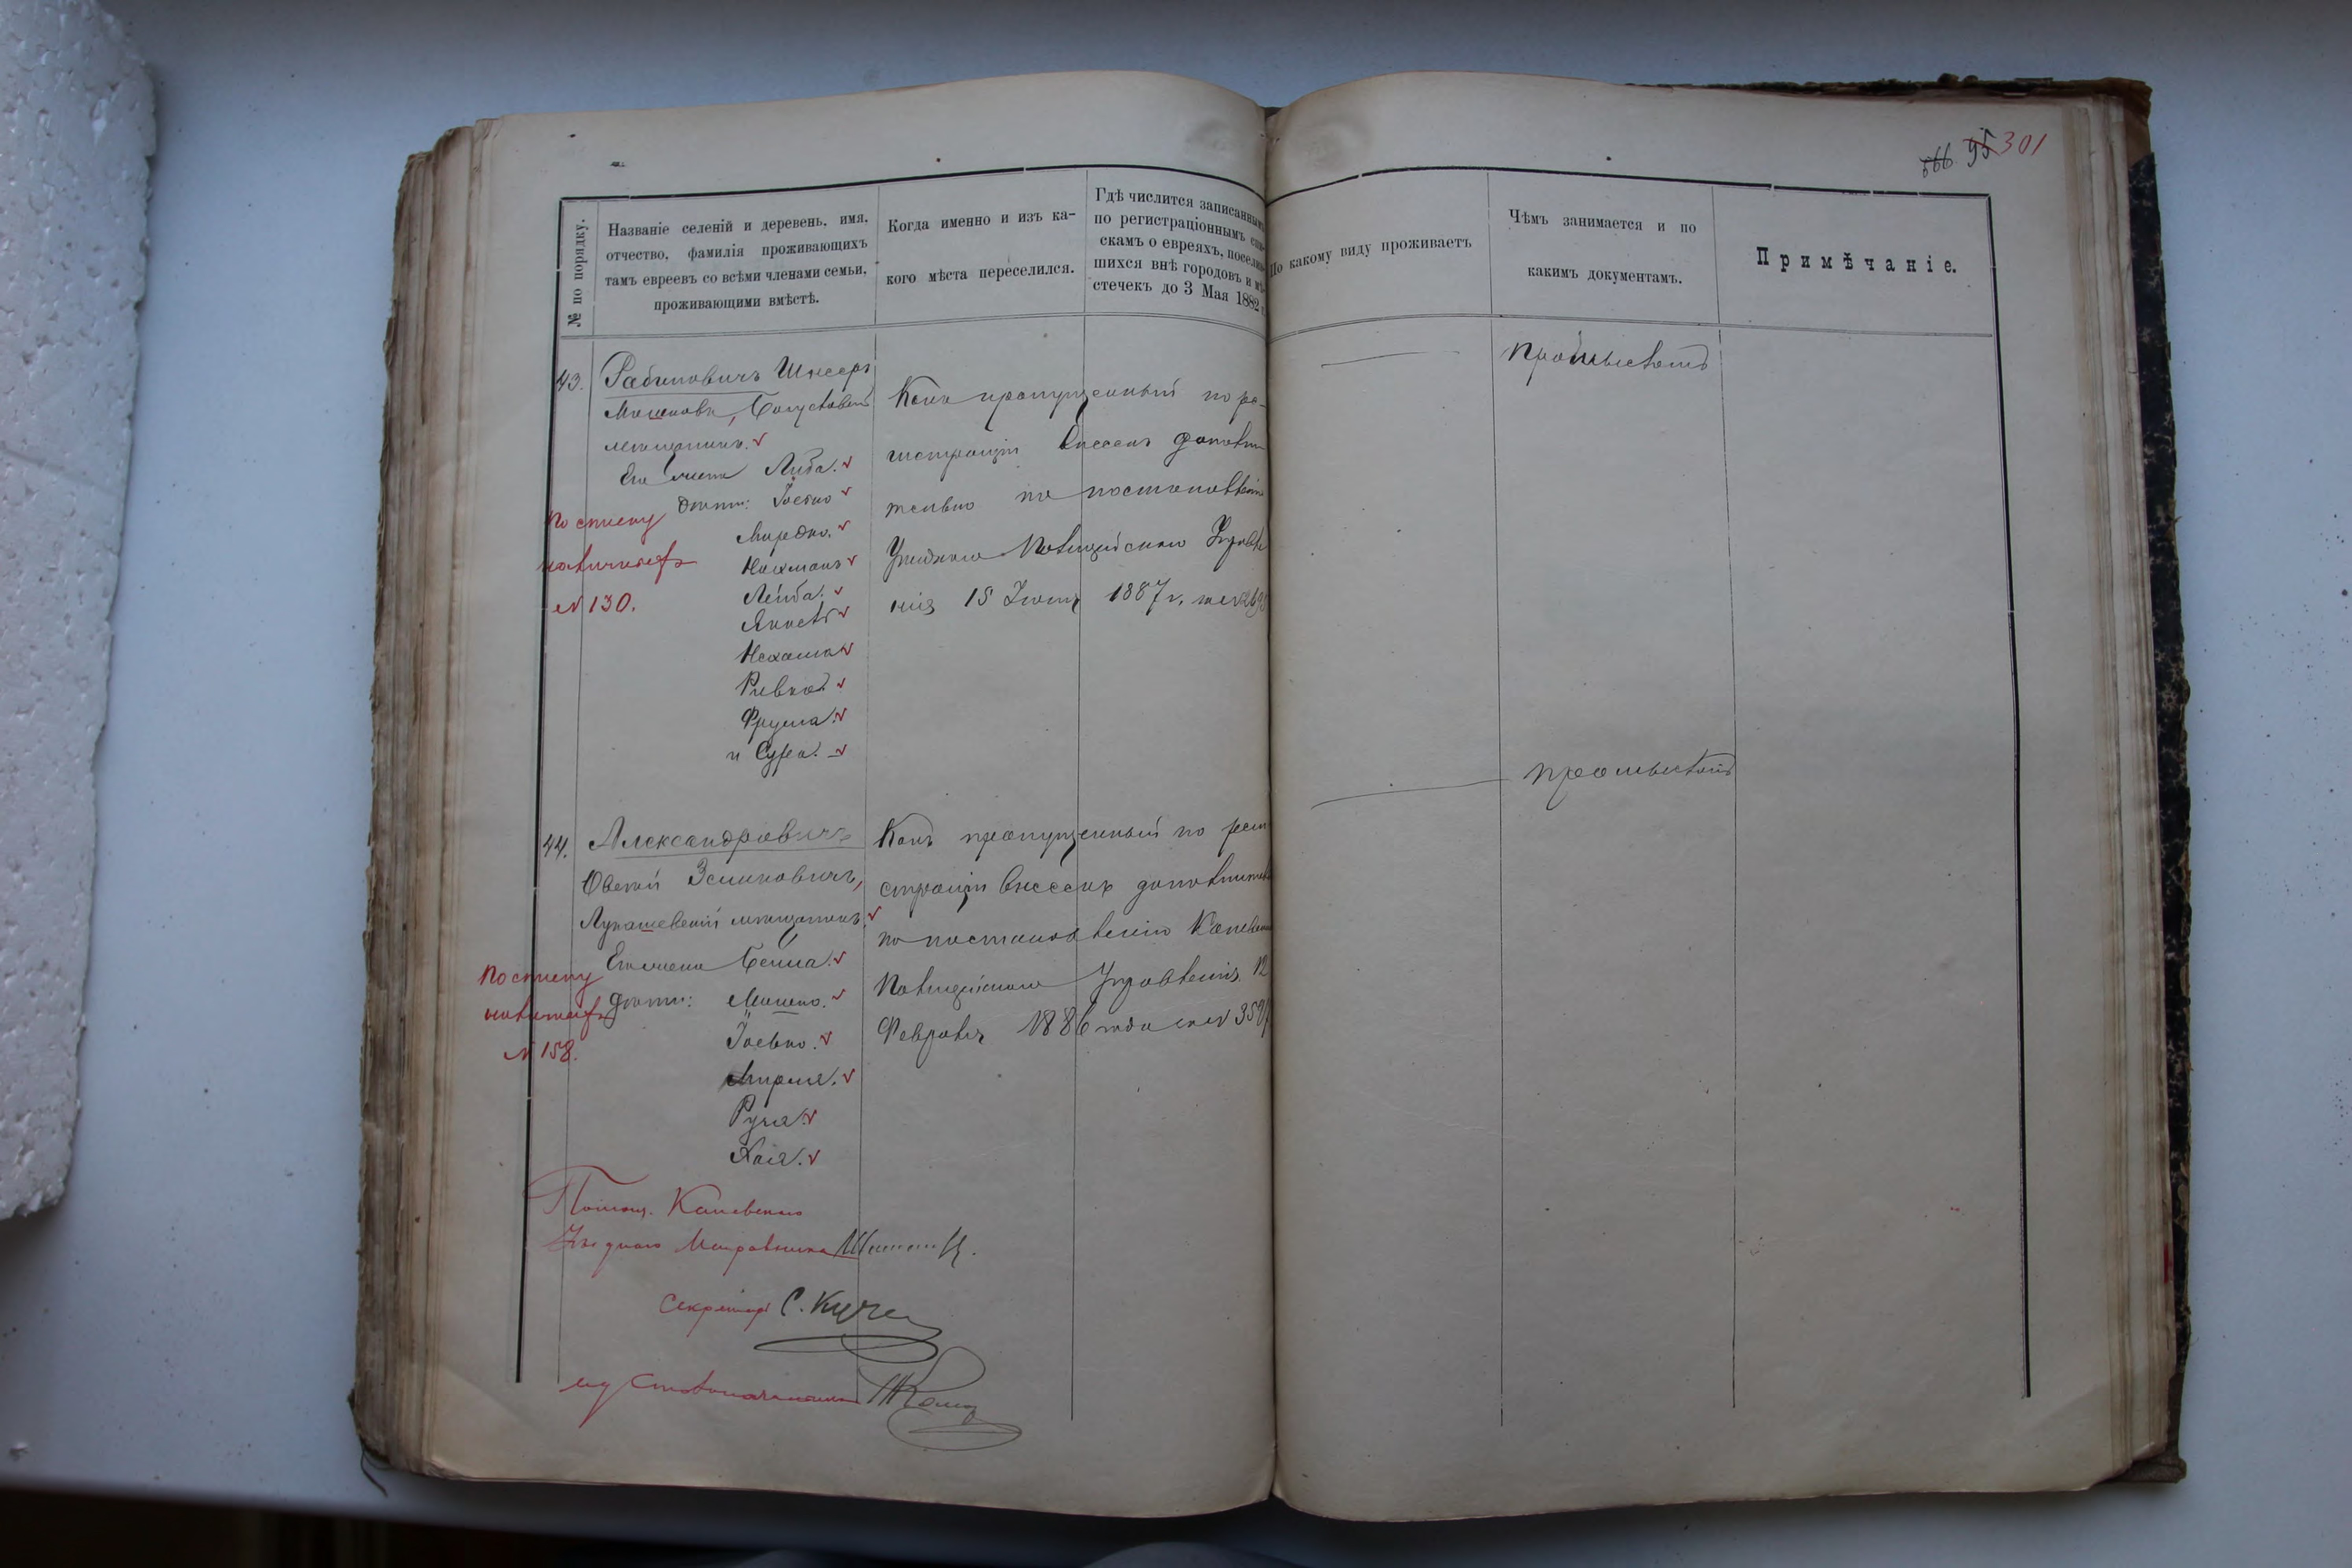 566 95 301
№ по порядку.
Названіе селеній и деревень, имя,
отчество, фамилія проживающихъ
тамъ евреевъ со всѣми членами семьи,
проживающими вмѣстѣ.
Когда именно и изъ ка-
кого мѣста переселился.
Гдѣ числится записаннымъ
по регистраціоннымъ спи-
скамъ о евреяхъ, поселив-
шихся внѣ городовъ и мѣ-
стечекъ до 3 Мая 1882 г.
По какому виду проживаетъ
Чѣмъ занимается и по
какимъ документамъ.
Примѣчаніе.
43.
Рабиновичъ Шнееръ
Мошковъ, Богуславскій
мѣщанинъ.
Его жена Либа.
дѣти: Іосько
Мордко.
Нахманъ
Лейба.
Янкель
Нехама
Ривка.
Фрума.
и Сура.
По списку
наличности
№ 130.
Какъ пропущенный по ре-
гистраціи внесенъ дополни-
тельно по постановленію
Уѣзднаго Полицейскаго Управле-
нія 15 Іюня 1887 г. за №
Промысломъ
44.
Александровичъ
Овсей Зельковичъ,
Лукашевскій мѣщанинъ.
Его жена Бейла.
дѣти: Мошко.
Іосько.
Мирля.
Руся.
Хая.
По списку
наличности
№ 158.
Какъ пропущенный по реги-
страціи внесенъ дополнительно
по постановленію Каневскаго
Полицейскаго Управленія 12
Февраля 1886 года за №
Промысломъ
Помощ. Каневскаго
Уѣзднаго Исправника
Секретарь С.
Столоначальника